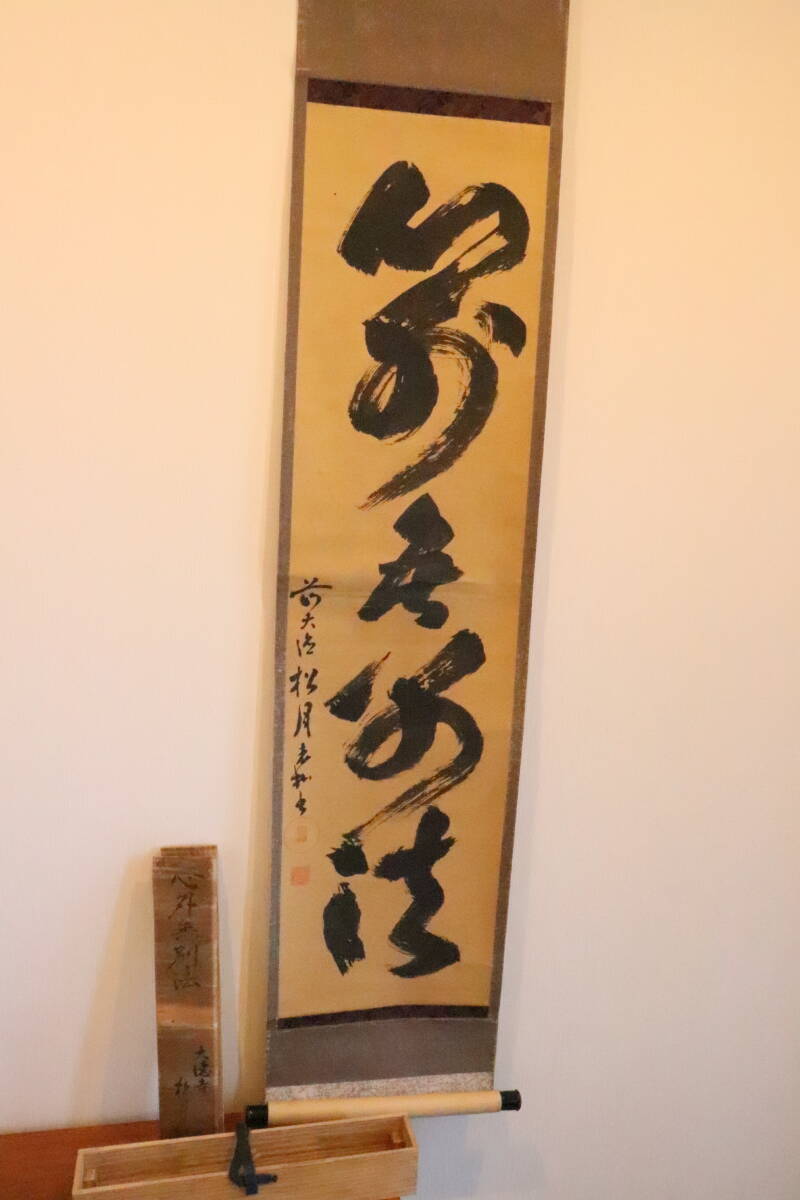 心外無別法
前大徳松月老衲書
心外無別法
大徳寺